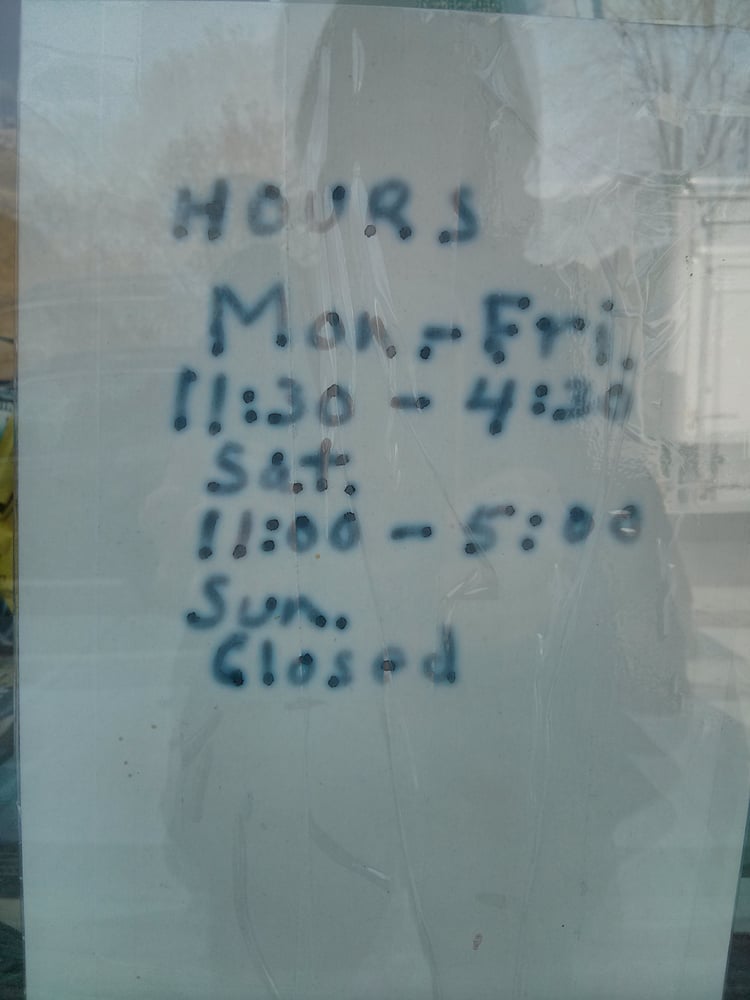 HOURS
Mon.-Fri.
11:30 - 4:30
Sat.
11:00 - 5:00
Sun.
Closed